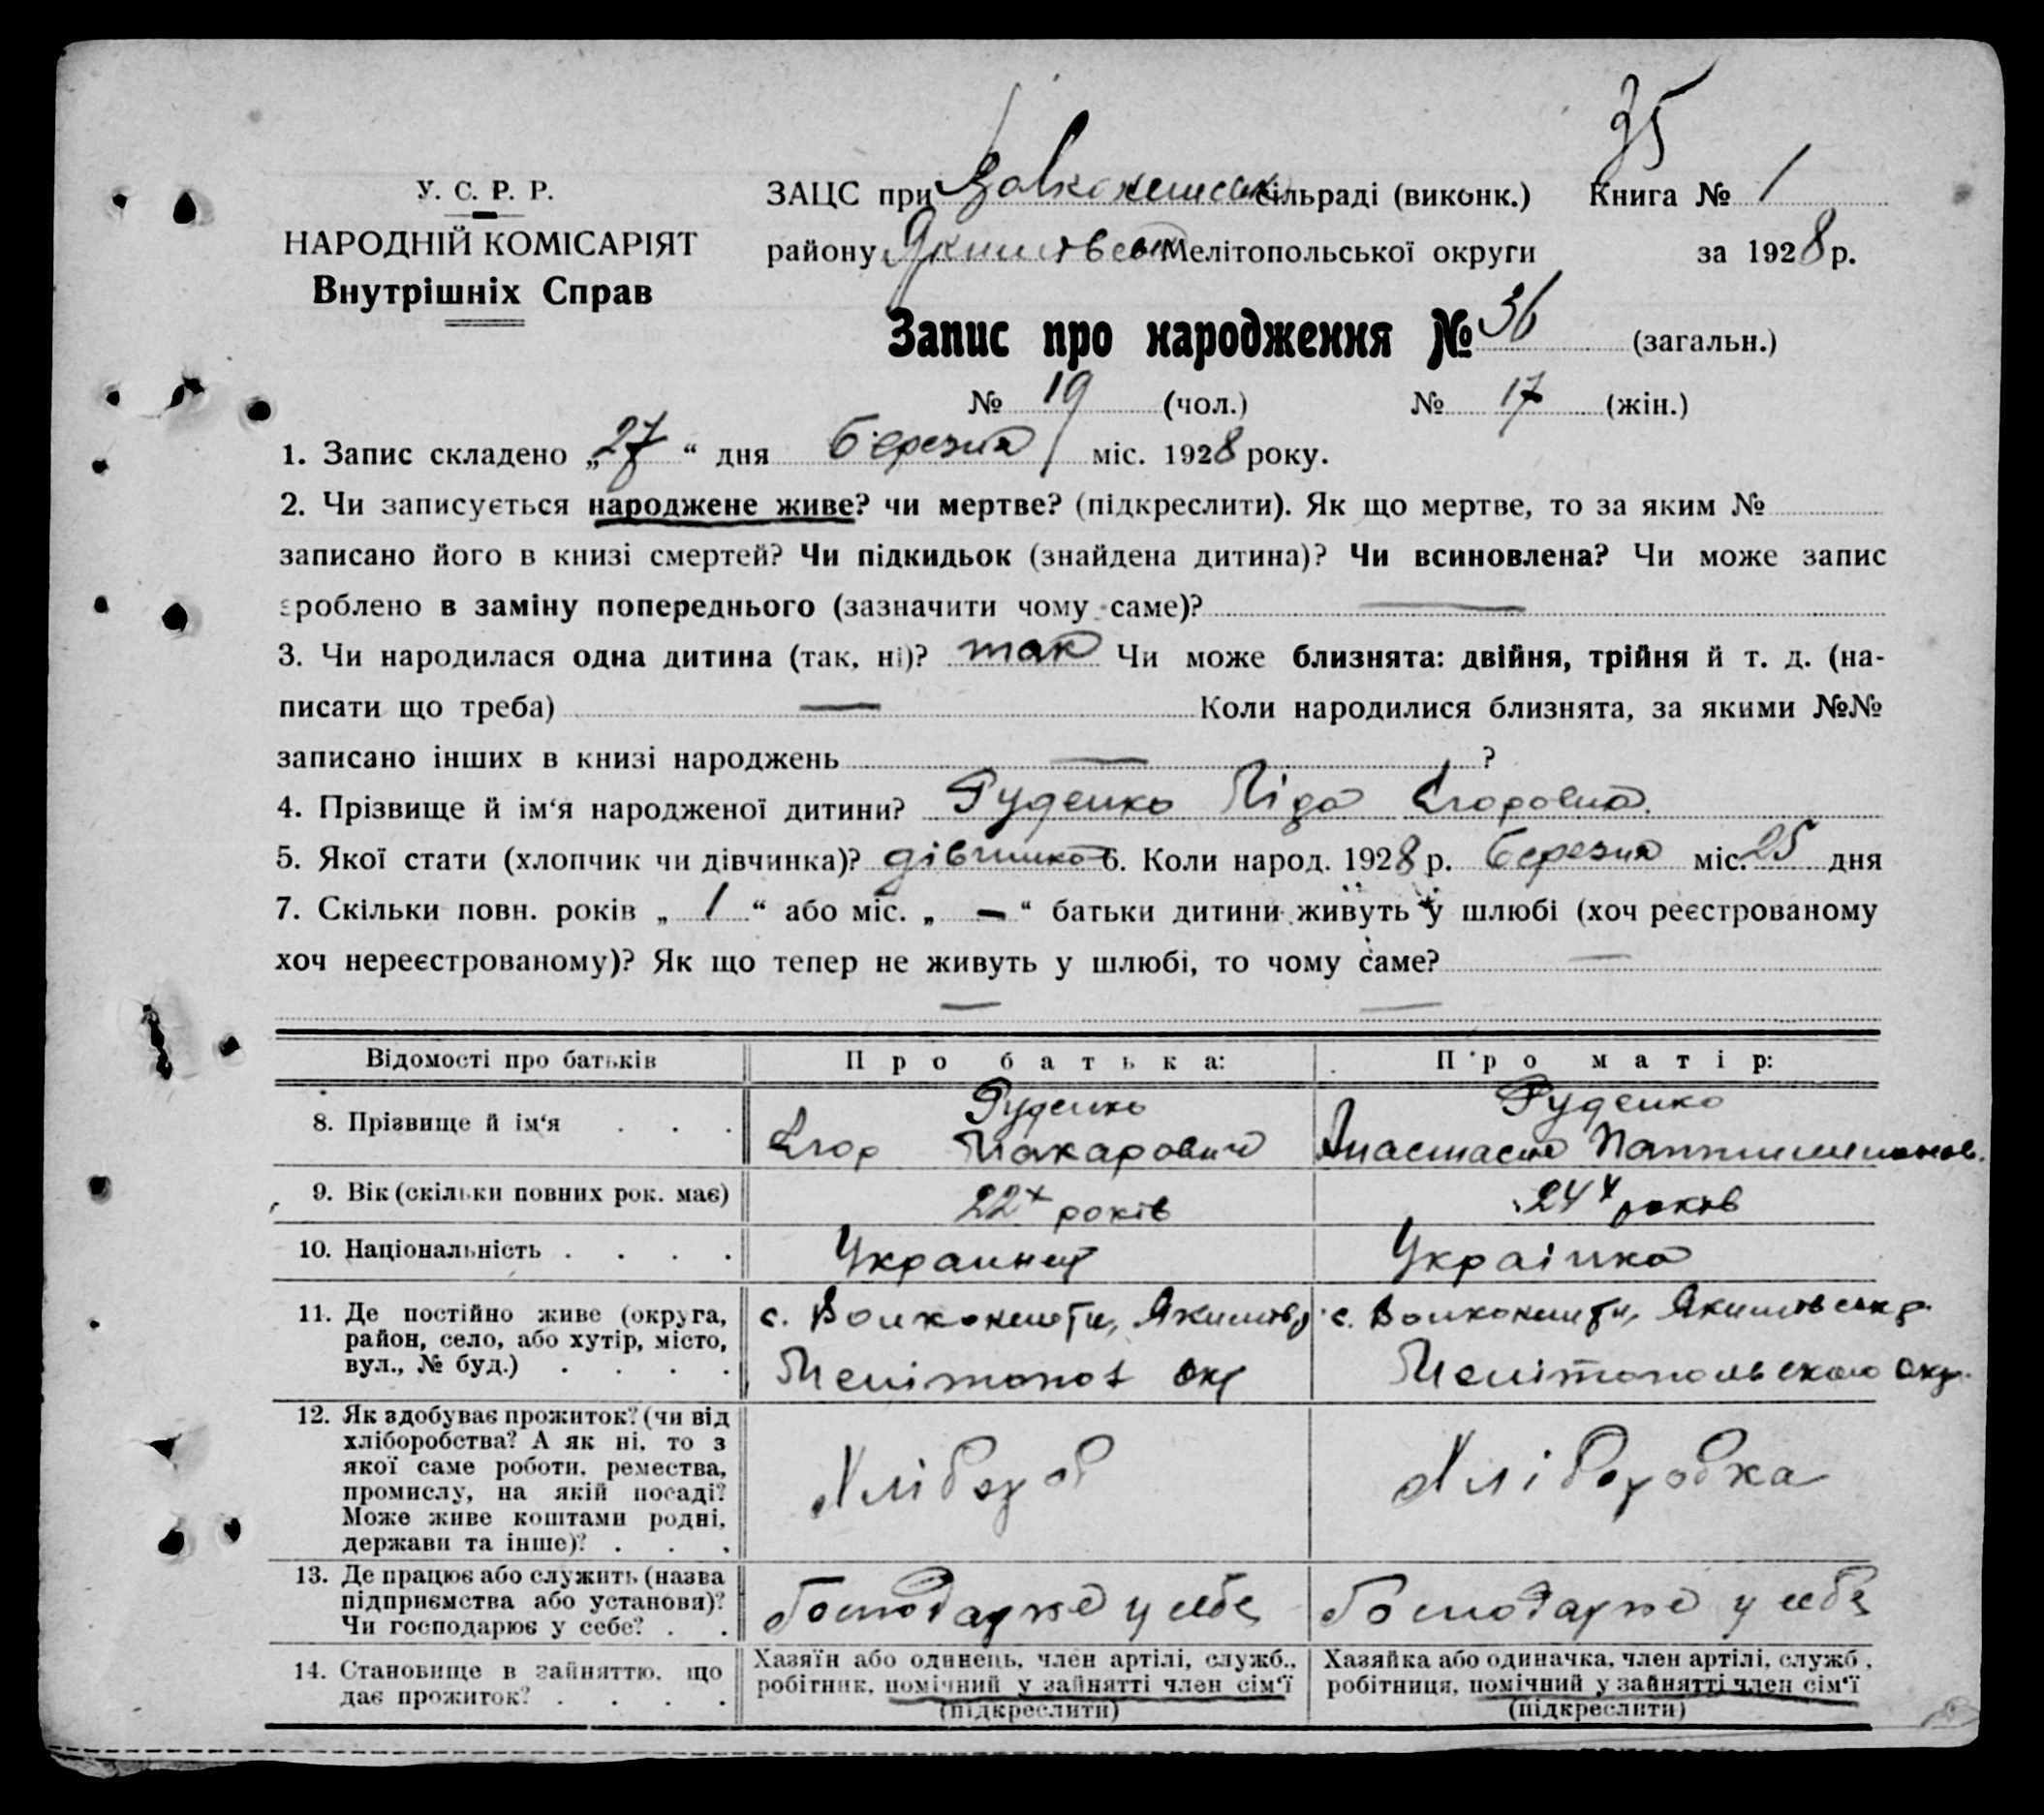 35
У. С. Р. Р. ЗАЦС при сільраді (виконк.) Книга № 1
НАРОДНІЙ КОМІСАРІЯТ району Мелітопольської округи за 1928 р.
Внутрішніх Справ
Запис про народження № 36 (загальн.)
№ 19 (чол.) № 17 (жін.)
1. Запис складено „27“ дня березня міс. 1928 року.
2. Чи записується народжене живе? чи мертве? (підкреслити). Як що мертве, то за яким №
записано його в книзі смертей? Чи підкидьок (знайдена дитина)? Чи всиновлена? Чи може запис
зроблено в заміну попереднього (зазначити чому саме)? —
3. Чи народилася одна дитина (так, ні)? так Чи може близнята: двійня, трійня й т. д. (на-
писати що треба) — Коли народилися близнята, за якими №№
записано інших в книзі народжень — ?
4. Прізвище й ім‘я народженої дитини? Руденко Ліда Єгоровна.
5. Якої стати (хлопчик чи дівчинка)? дівчинка 6. Коли народ. 1928 р. березня міс. 25 дня
7. Скільки повн. років „ 1 “ або міс. „ — “ батьки дитини живуть у шлюбі (хоч реєстрованому
хоч нереєстрованому)? Як що тепер не живуть у шлюбі, то чому саме? —
— —
Відомості про батьків Про батька: Про матір:
8. Прізвище й ім‘я . . . Руденко Руденко
Єгор Макарович Анастасія
9. Вік (скільки повних рок. має) 22 років 24 років
10. Національність . . . . Украинец Українка
11. Де постійно живе (округа,
район, село, або хутір, місто,
вул., № буд.) . . . .
с. Волконешти, Якимов р
Мелітопол окр
с. Волконешти, Якимовськ р.
Мелітопольскою окр.
12. Як здобуває прожиток? (чи від
хліборобства? А як ні, то з
якої саме роботи, ремества,
промислу, на якій посаді?
Може живе коштами родні,
держави та інше)? . . .
Хлібороб
Хліборобка
13. Де працює або служить (назва
підприємства або установи)?
Чи господарює у себе? . .
Господарює у себе
Господарює у себе
14. Становище в зайняттю, що
дає прожиток? . . . .
Хазяїн або одинець, член артілі, служб.,
робітник, помічний у зайнятті член сім‘ї
(підкреслити)
Хазяйка або одиначка, член артілі, служб.,
робітниця, помічний у зайнятті член сім‘ї
(підкреслити)